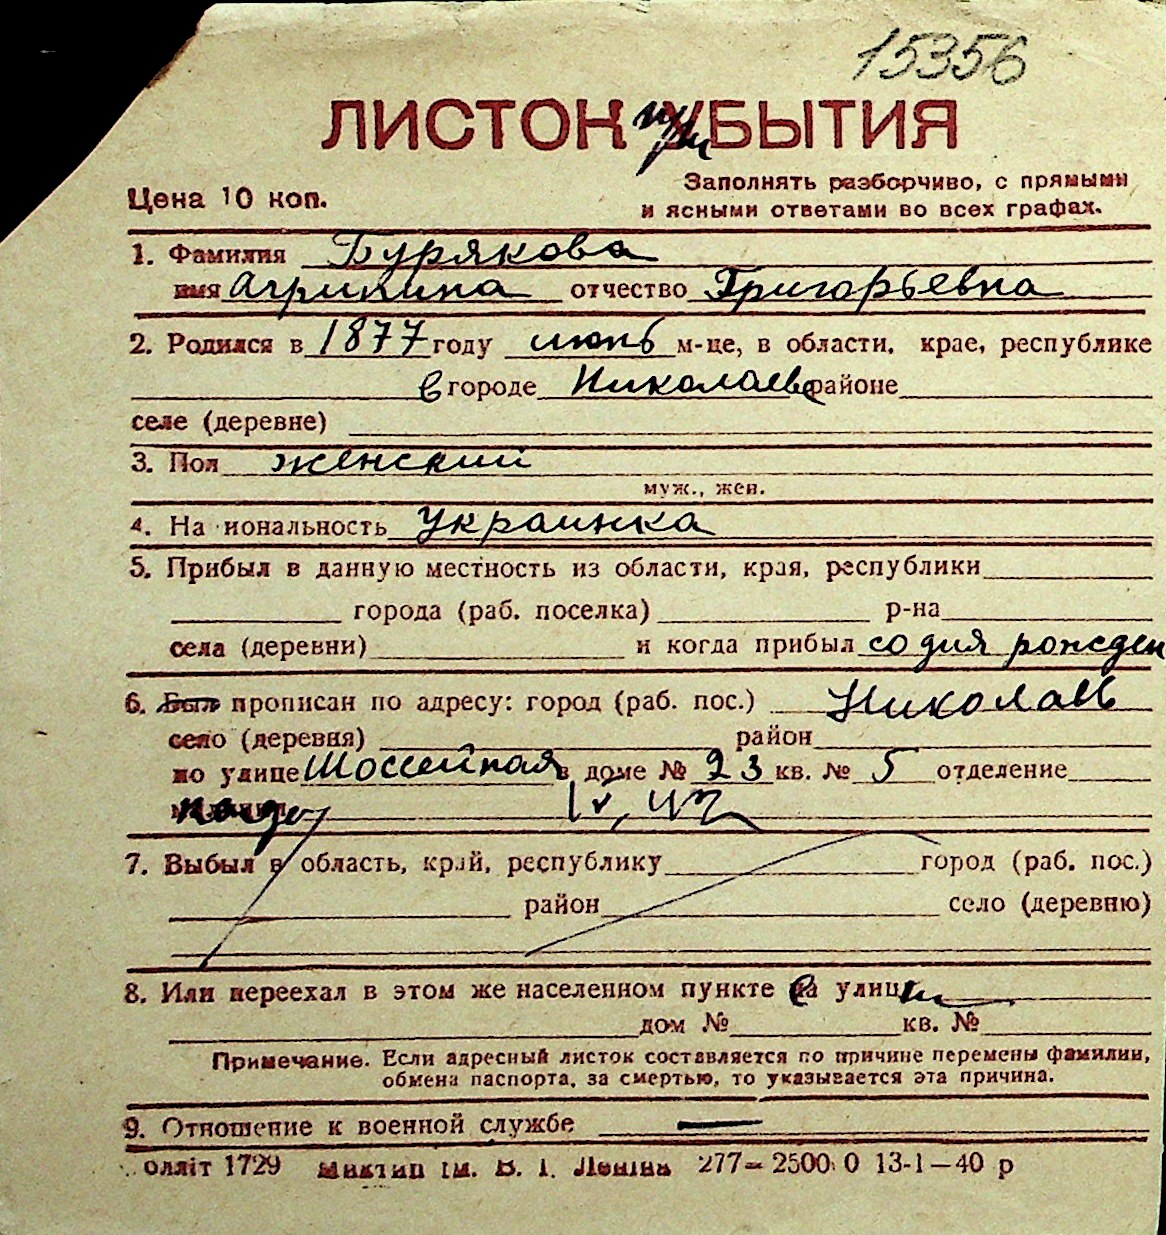 15356
ЛИСТОК прибБЫТИЯ
Цена 10 коп.
Заполнять разборчиво, с прямыми
и ясными ответами во всех графах.
1. Фамилия Бурякова
имя Агрипина отчество Григорьевна
2. Родился в 1877 году июнь м-це, в области, крае, республике
в городе Николаеве районе
селе (деревне)
3. Пол женский
муж., жен.
4. На иональность украинка
5. Прибыл в данную местность из области, края, республики
города (раб. поселка) р-на
села (деревни) и когда прибыл со дня рожден
6. Был прописан по адресу: город (раб. пос.) Николаев
село (деревня) район
по улице Шоссейная в доме № 23 кв. № 5 отделение
7. Выбыл в область, край, республику город (раб. пос.)
район село (деревню)
8. Или переехал в этом же населенном пункте на улицу
дом № кв. №
Примечание. Если адресный листок составляется по причине перемены фамилии,
обмена паспорта, за смертью, то указывается эта причина.
9. Отношение к военной службе —
олліт 1729 Миктип ім. В. І. Леніна 277—2500 0 13-1—40 р